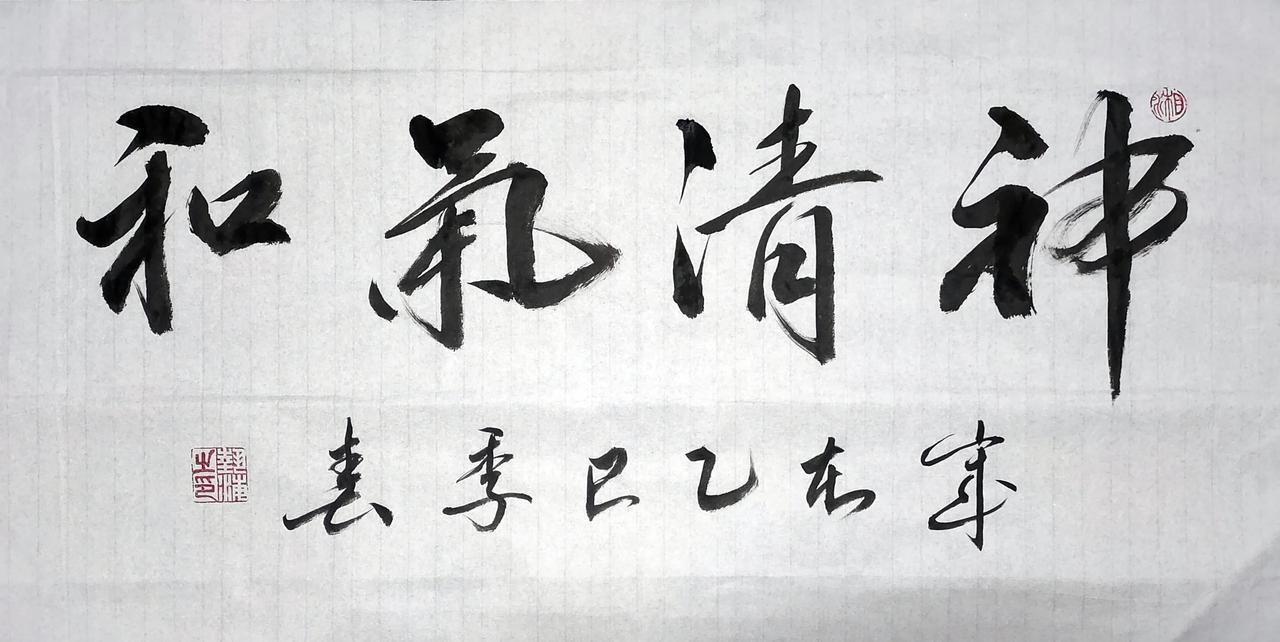 神清氣和
歲在乙巳季春